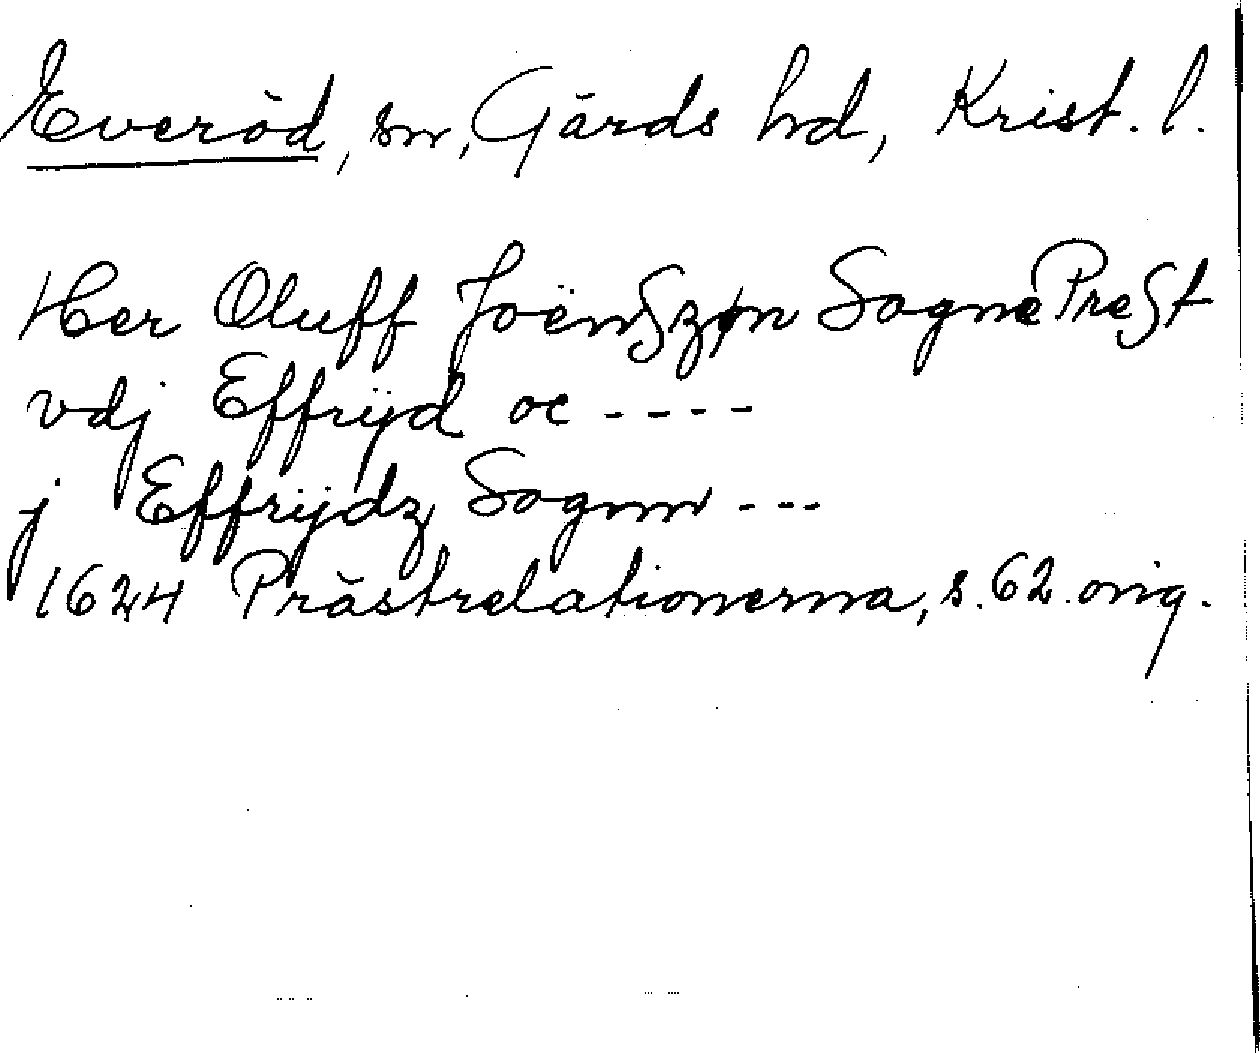 Everöd, sn, Gärds hd, Krist. l.
Her Oluff JoënSzøn Sogne PreSt
vdj Effrÿd oc ----
j Effrÿdz Sognn ---
1624 Prästrelationerna, s. 62. orig.